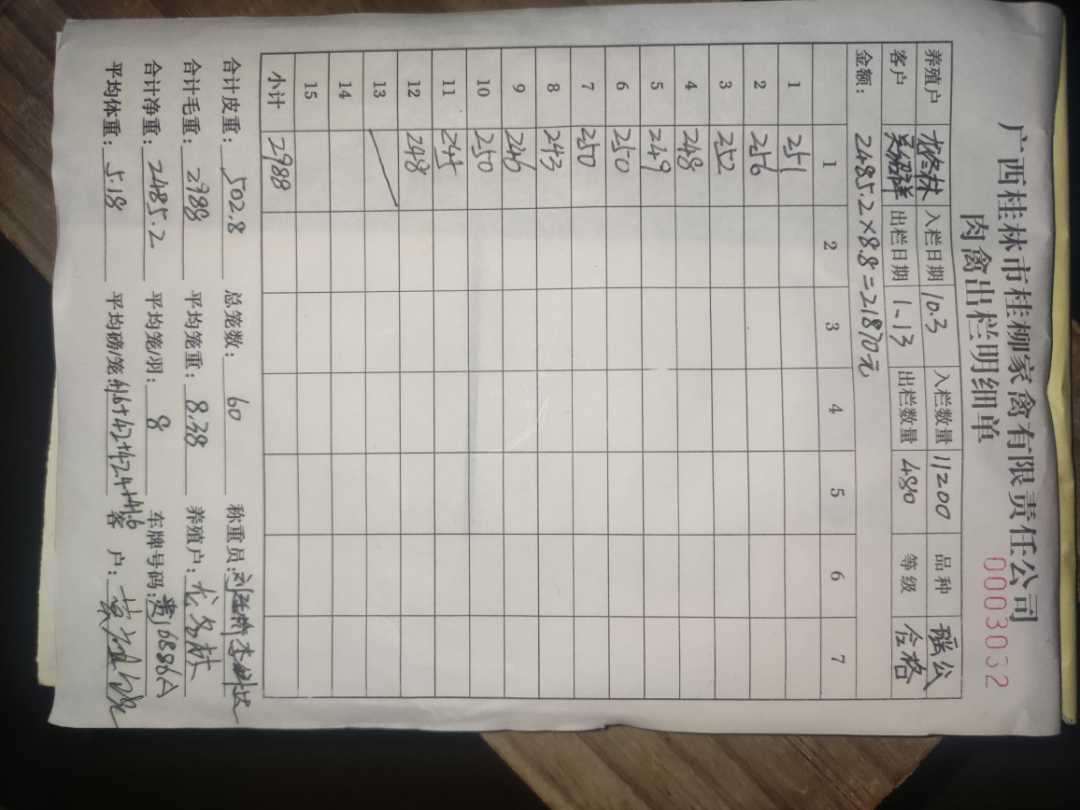 广西桂林市桂柳家禽有限责任公司
肉禽出栏明细单
0003032
养殖户 龙冬林 入栏日期 10.3 入栏数量 11200 品种 瑶公
客户 吴绍祥 出栏日期 1.13 出栏数量 480 等级 合格
金额: 2485.2×8.8=21870元
1 2 3 4 5 6 7
1 251
2 256
3 252
4 248
5 249
6 250
7 250
8 243
9 246
10 250
11 245
12 248
13
14
15
小计 2988
合计皮重: 502.8 总笼数: 60 称重员:
合计毛重: 2988 平均笼重: 8.38 养殖户: 龙冬林
合计净重: 2485.2 平均笼/羽: 8 车牌号码: 贵J6886A
平均体重: 5.18 平均磅/笼: 41.6+42+42.4+41.6 客户: